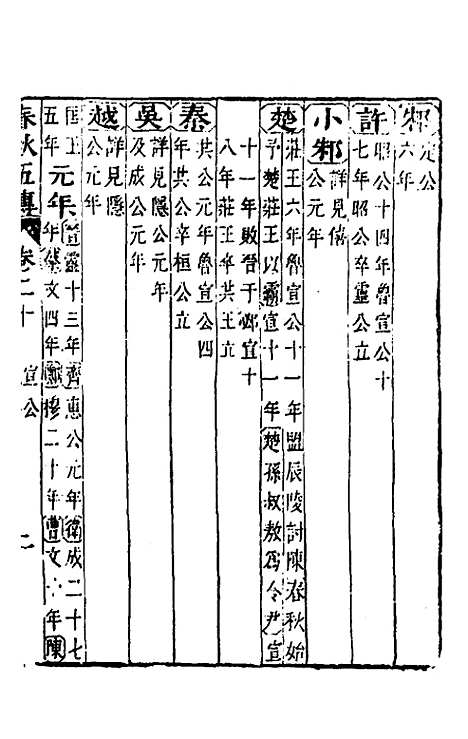 邾 定公
六年
許 昭公十四年魯宣公十
七年昭公卒靈公立
小邾 詳見僖
公元年
楚 莊王六年魯宣公十一年盟辰陵討陳春秋始
予楚莊王以霸宣十一年楚孫叔敖爲令尹宣
十一年敗晉于邲宣十
八年莊王卒共王立
秦 共公元年魯宣公四
年共公卒桓公立
吳 詳見隱公元年
及成公元年
越 詳見隱
公元年
匡王
五年 元年 晉靈十三年齊惠公元年衛成二十七
年蔡文四年鄭穆二十年曹文十年陳
春秋五傳 卷二十 宣公 二